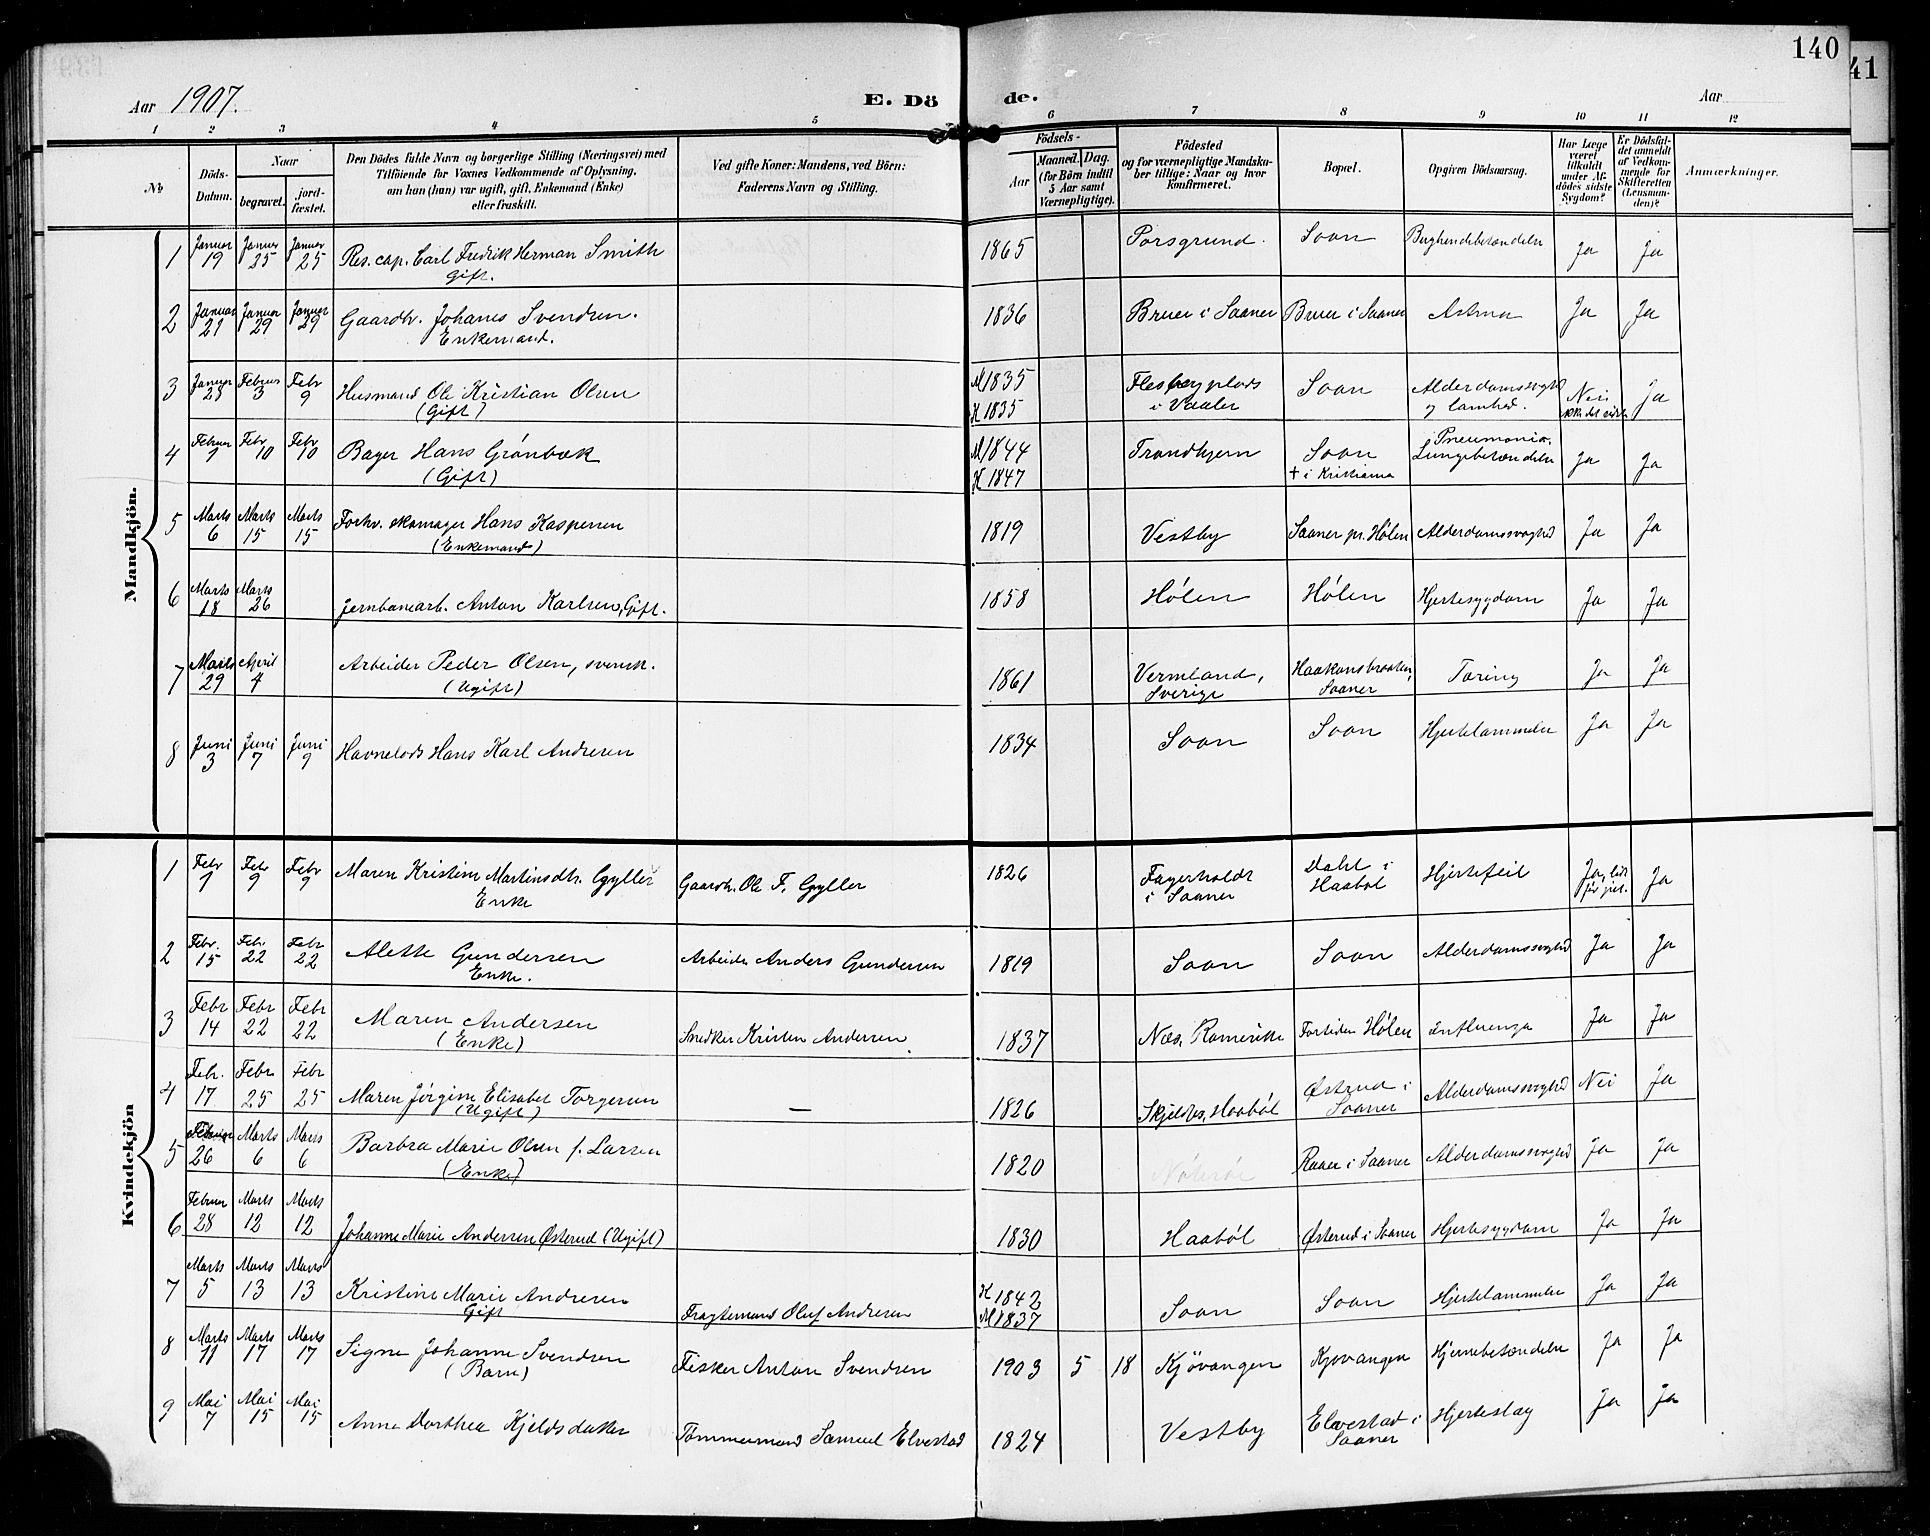 140
41
Aar 1907.
E. Dö
de.
Aar
1 2 3 4 5 6 7 8 9 10 11 12
No
Döds-Datum.
Naar
begravet.
jord-fæstet.
Den Dödes fulde Navn og borgerlige Stilling (Næringsvei) med
Tilföiende for Voxnes Vedkommende af Oplysning,
om han (hun) var ugift, gift, Enkemand (Enke)
eller fraskilt.
Ved gifte Koner: Mandens, ved Börn:
Faderens Navn og Stilling.
Födsels-
Aar
Maaned. Dag.
(for Börn indtil
5 Aar samt
Værnepligtige).
Födested
og for værnepligtige Mandska-
ber tillige: Naar og hvor
konfirmeret.
Bopæl.
Opgiven Dödsaarsag.
Har Læge
været
tilkaldt
under Af-
dödes sidste
Sygdom?
Er Dödsfal-
det anmeldt
af Vedkom-
mende for
Skifteretten
(Lensman-
den)?
Anmærkninger.
Mandkjön.
1 Januar 19 Januar 25 Januar 25 Res. cap. Carl Fredrik Herman Smith 1865 Porsgrund. Soon Ja Ja
Gift.
2 Januar 21 Januar 29 Januar 29 Gaardbr. Johanes Svendsen. 1836 Bruer i Saaner Bruer i Saaner Astma Ja Ja
Enkemand.
3 Januar 28 Februar 3 Febr 9 Husmand Ole Kristian Olsen M 1835 Flesbergplads Soon Alderdomssvaghed Nei Ja
(Gift) K 1835 i Vaaler og lamhed. ikke det sidste
4 Februar 1 Febr 10 Febr 10 Bager Hans Grönbæk M 1844 Trondhjem Soon Pneumonia, Ja Ja
(Gift) K 1847 † i Kristiania Lungebetændelse
5 Marts 6 Marts 15 Marts 15 Forhv. skomager Hans Kaspersen 1819 Vestby Saaner pr. Hölen Alderdomssvaghed Ja Ja
(Enkemand)
6 Marts 18 Marts 26 Jernbanearb. Anton Karlsen, Gift. 1858 Hölen Hölen Hjertesygdom Ja Ja
7 Marts 29 April 4 Arbeider Peder Olsen, svensk. 1861 Vermland, Haakonsbraaten, Tæring Ja Ja
(Ugift) Sverige Saaner
8 Juni 3 Juni 7 Juni 9 Havnelods Hans Karl Andresen 1834 Soon Soon Hjertelammelse Ja Ja
Kvindekjön
1 Febr 1 Febr 9 Febr 9 Maren Kristine Martinsdtr. Gyller Gaardbr. Ole F. Gyller 1826 Fagerholdt Dahl i Hjertefeil Ja, Ja
Enke i Saaner Haaböl
2 Febr. 15 Febr. 22 Febr 22 Alette Gundersen Arbeider Anders Gundersen 1819 Soon Soon Alderdomssvaghed Ja Ja
Enke.
3 Febr 14 Febr 22 Febr 22 Maren Andersen Snedker Kristen Andersen 1837 Næs, Romerike Fortiden Hölen Influenza Ja Ja
(Enke)
4 Febr. 17 Febr 25 Febr 25 Maren Jörgine Elisabet Torgersen — 1826 Skjeldbr, Haaböl Östrud i Alderdomssvaghed Nei Ja
(Ugift) Saaner
5 Februar 26 Marts 6 Marts 6 Barbra Marie Olsen f. Larsen 1820 Raaer i Saaner Alderdomssvaghed Ja Ja
(Enke)
6 Februar 28 Marts 12 Marts 12 Johanne Marie Andersen Österud (Ugift) 1830 Haaböl Österud i Saaner Hjertesygdom Ja Ja
7 Marts 5 Marts 13 Marts 13 Kristine Marie Andresen Fragtemand Oluf Andresen K 1842 Soon Soon Hjertelammelse Ja Ja
Gift M 1837
8 Marts 11 Marts 17 Marts 17 Signe Johanne Svendsen Fisker Anton Svendsen 1903 5 18 Kjövangen Kjövangen Hjernebetændelse Ja Ja
(Barn)
9 Mai 7 Mai 15 Mai 15 Anne Dorthea Kjeldsdatter Tömmermand Samuel Elvestad 1824 Vestby Elvestad i Hjerteslag Ja Ja
Saaner